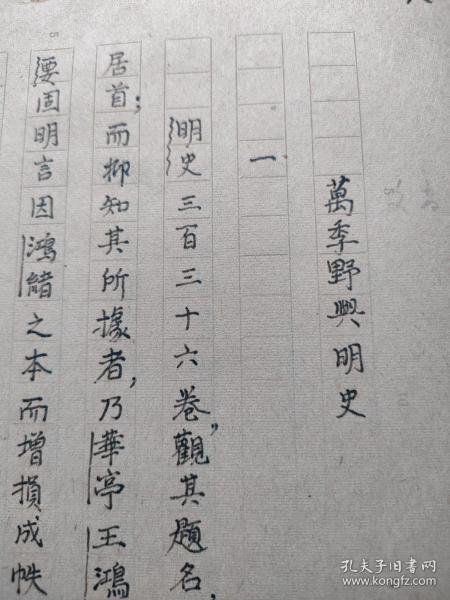 萬季野與明史
一
明史三百三十六卷,觀其題名,
居首;而抑知其所據者,乃華亭王鴻
固明言因鴻緒之本而增損成帙
孔夫子旧书网